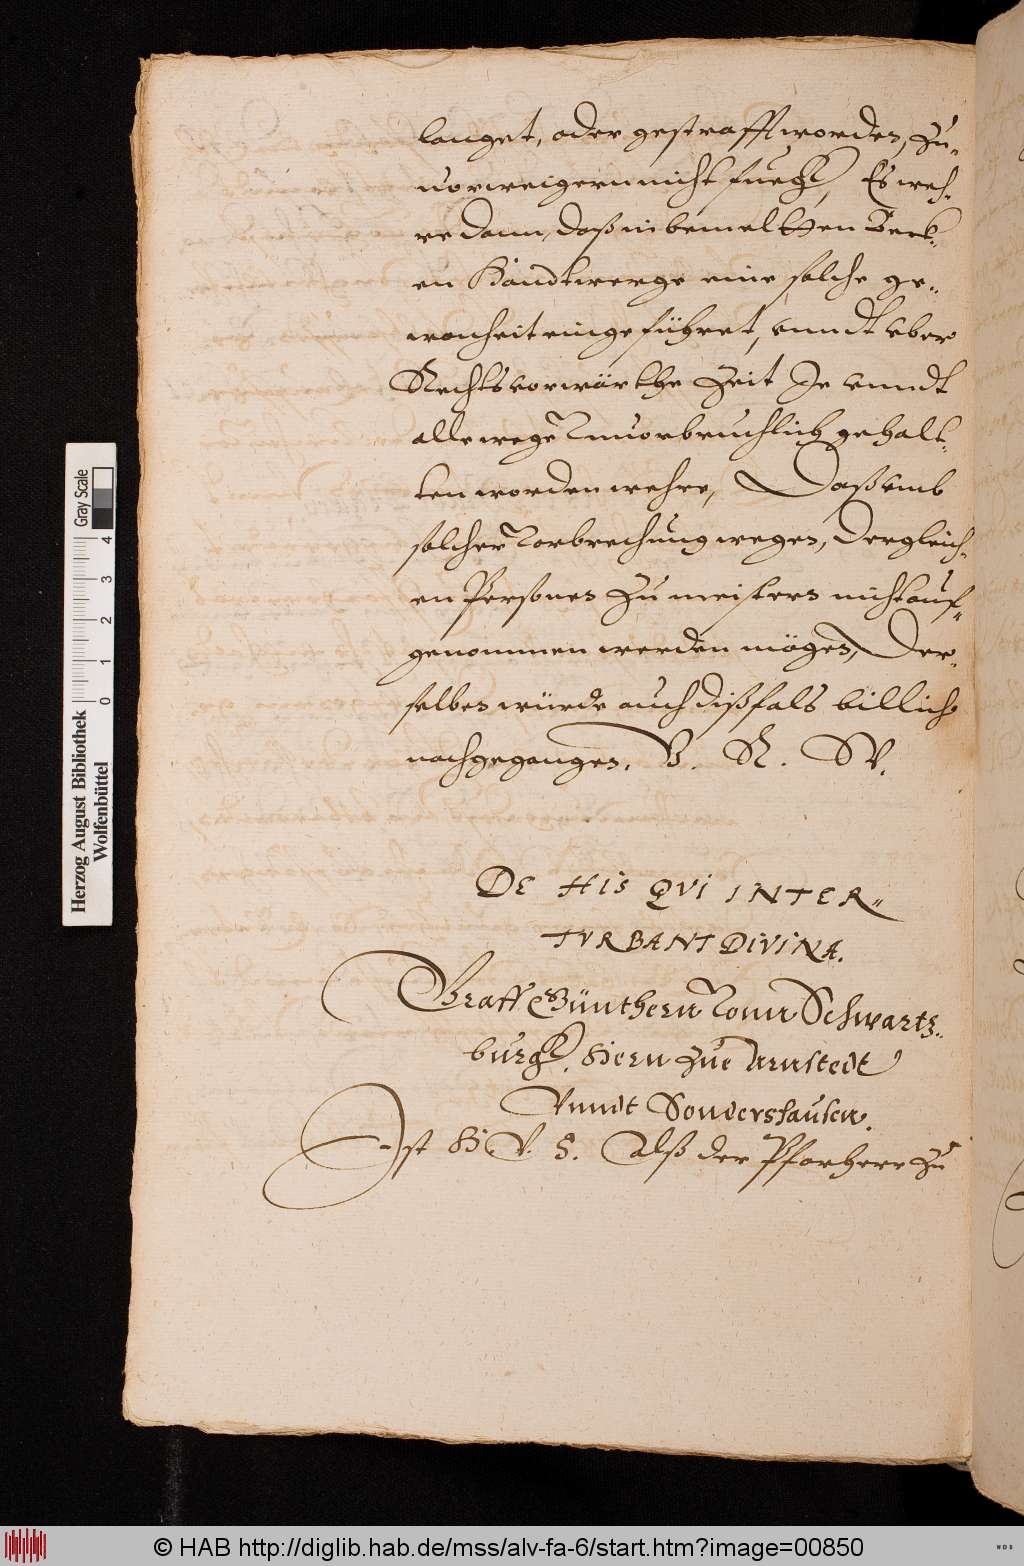 langet, oder gestrafft worden, zu-
uorweigern nicht fueg, Es weh-
re dann, daß in bemeltten Beck-
en Handtwerge eine solche ge-
wonheit eingeführet, vnndt vber
Rechtsvorwärthe Zeit Je vnndt
allewege vnuorbruchlich gehalt-
ten worden wehre, Daß vmb
solcher vorbrechung wegen, dergleich-
en Personen zu meistern nicht auf-
genommen werden mögen, Der-
selben würde auch dißfals billich
nachgegangen. V. R. W.
DE HIS QVI INTER-
TVRBANT DIVINA.
Graff Günthern vonn Schwartz-
burgk. Hern zue Arnstedt
Vnndt Sondershausen.
Ist H. V. S. Alß der Pfarherr zu
Herzog August Bibliothek
Wolfenbüttel
0 1 2 3 4
Gray Scale
© HAB http://diglib.hab.de/mss/alv-fa-6/start.htm?image=00850